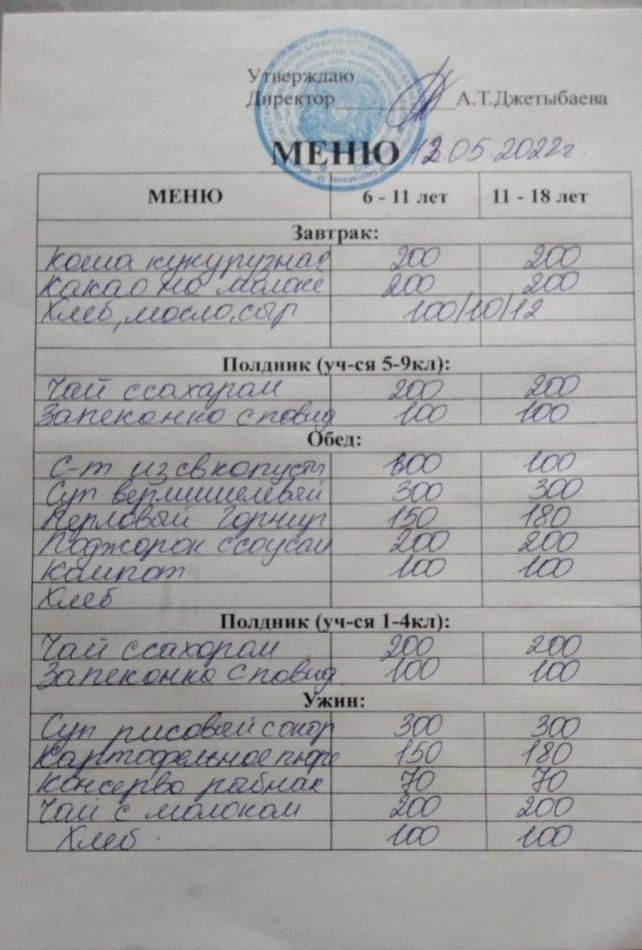 Утверждаю
Директор А.Т.Джетыбаева
МЕНЮ 12.05.2022г.
МЕНЮ 6 - 11 лет 11 - 18 лет
Завтрак:
Каша кукурузная 200 200
Какао на молоке 200 200
Хлеб, масло, сыр 100/10/12
Полдник (уч-ся 5-9кл):
Чай с сахарам 200 200
Запеканка с повид 100 100
Обед:
С-т из св капусты 100 100
Суп вермишелевый 300 300
Перловый гарнир 150 180
Поджарок с соусам 200 200
Кампот 100 100
Хлеб
Полдник (уч-ся 1-4кл):
Чай с сахарам 200 200
Запеканка с повид 100 100
Ужин:
Суп рисовый с окор 300 300
Картофельное пюре 150 180
Консерва рыбная 70 70
Чай с молоком 200 200
Хлеб 100 100